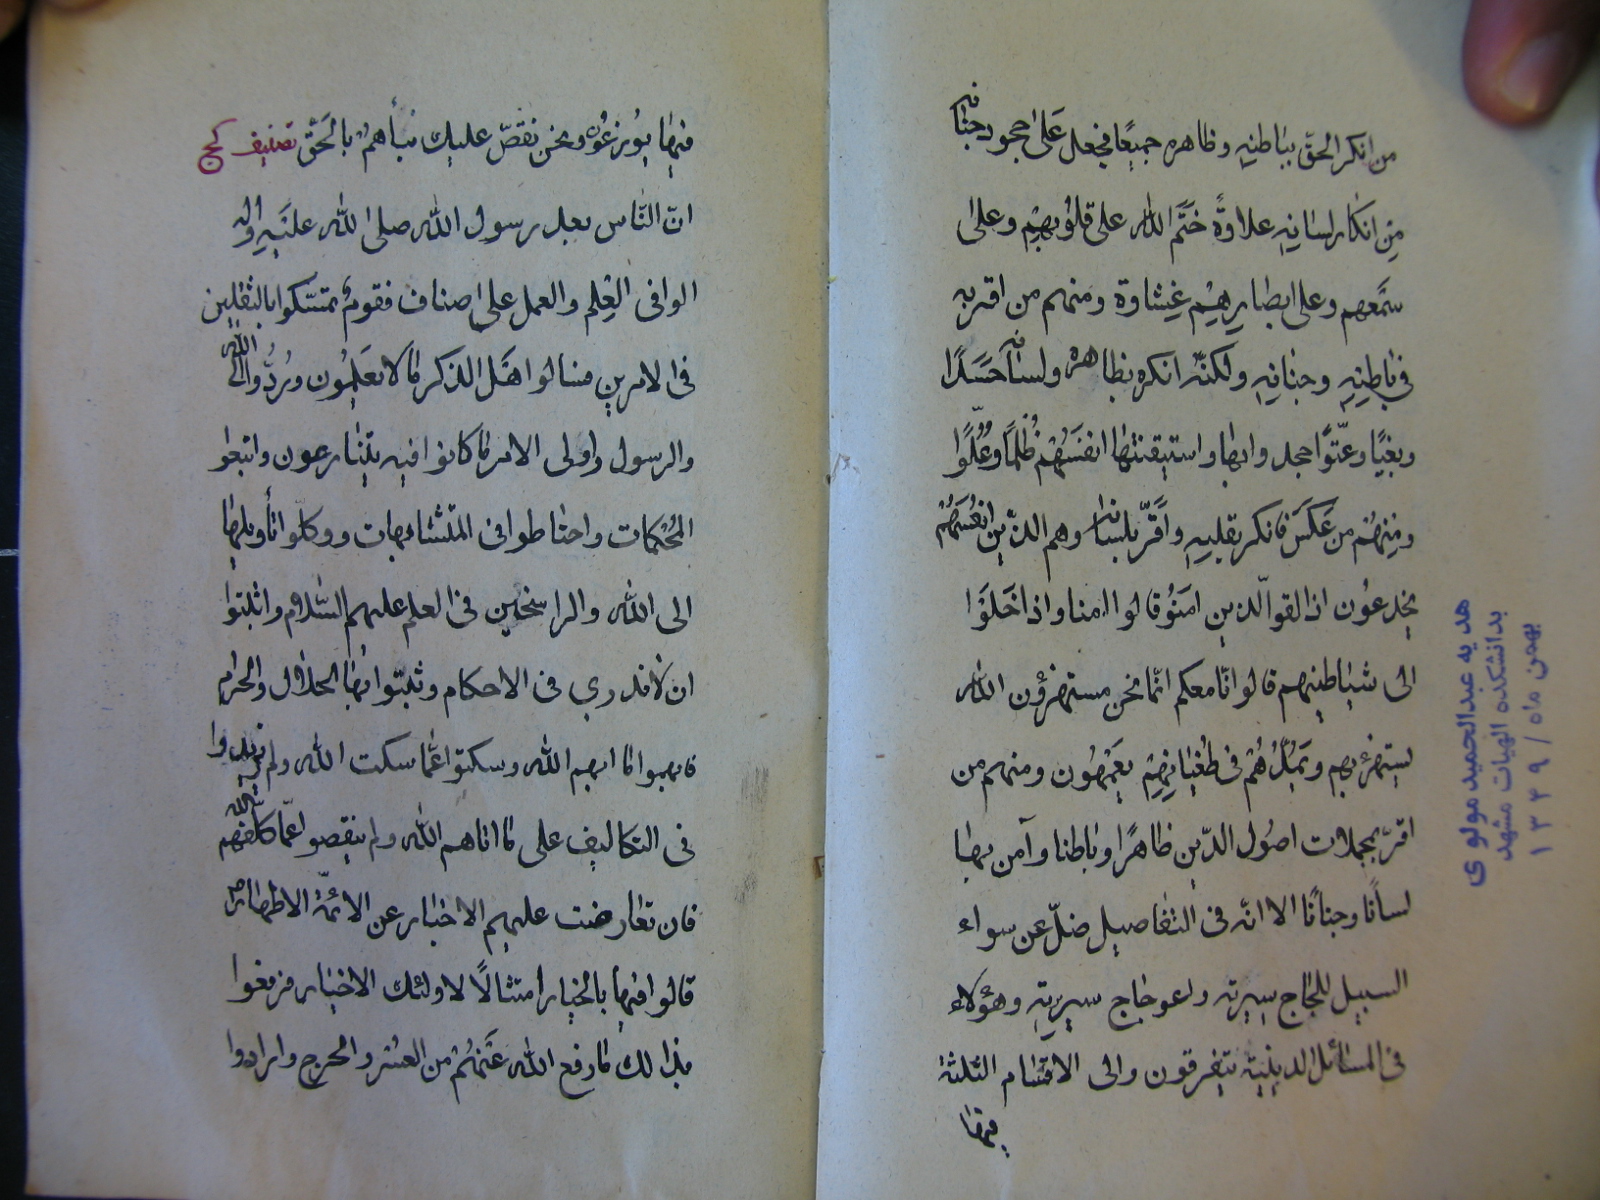 من انكر الحقّ بباطنِهِ وظاهره جميعًا فجعل عَلى جحود جنانه
مِن انكار لسانِهِ علاوةً خَتَم الله على قلوُبهِم وعلى
سمَعهم وعلى ابصارِهِم غِشاوة ومنهم من اقر به
في باطِنِهِ وجنانِهِ ولكنّه انكره بظاهره ولسانه حَسَدًا
وبغيًا وعتّوًا جحد وابها واستيقنتها انفسَهُم ظُلمًا وعُلّوًا
ومِنهُم من عَكَسَ فانكر بقلبِهِ واقَرّ بلسانه وهم الذين انفُسَهُم
يخدعوُن اذا لقوا الّذين امَنوُ قالوا امنا واذا خَلَوَا
الى شياطينهم قالوا انّا معكم انّما نحن مستهزؤن الله
يستهزئ بهم ويَمُدُّهُم فى طُغيانِهِم يعَمَهُون ومنهم من
اقرّ بجملات اصُول الدّين ظاهرًا وباطنا وآمن بها
لسانًا وجنانًا الا انّه فى التفاصيل ضلّ عن سواء
السبيل للجاج سيرته واعوجاج سريرتِهِ وهؤلاء
فى المسائل الدينية يتفرقون والى الاقسام الثلثة
فيها
فيها يوُزعُون ونحن نقصّ عليك نبأهم بالحَقّ تصنيف كج
انّ النّاس بعد رسول الله صلى الله علَيهِ واله
الوا فى العِلم والعمل على اصناف فقومٌ تمتسّكوا بالثقلين
فى الامرين فسالوا اهَل الذكر ما لا يعَلمُون ورُدُّوا الى الله
والرسول واولى الامر ما كانوا فيه يتنازعون واتبعوا
المُحكمات واحتاطوا فى المتشابهات ووكلّوا تأويلها
الى الله والراسخين فى العلم عليهم السّلام واثبتوا
ان لا ندرى فى الاحكام وثبتوا بها الحلال والحرام
فابهموا ما ابهم الله وسكتوا عّما سكت الله ولم يزيدوا
فى التكاليف على ما اتاهم الله ولم ينقصوا عمّا كلّفهم الله
فان تعارضت عليهم الاخبار عن الائمّة الاطهار
قالوا فيها بالخيار امتثالًا لاولئك الاخيار فرفعوا
بذالك ما رفع الله عَنهُم من العسُر والحرج وارادوا
هديه عبدالحميد مولوى
بدانشكده الهيات مشهد
بهمن ماه / ۱۳۳۹